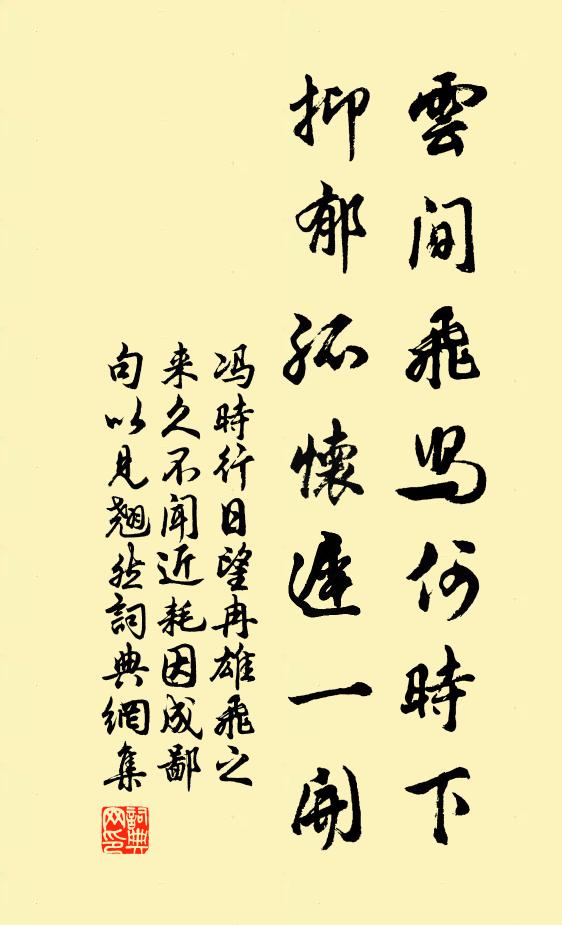 雲間飛舄何時下
抑郁孤懷遲一開
冯時行日望冉雄飛之
来久不闻近耗因成鄙
句以見翘然詞典網集
詞典網印